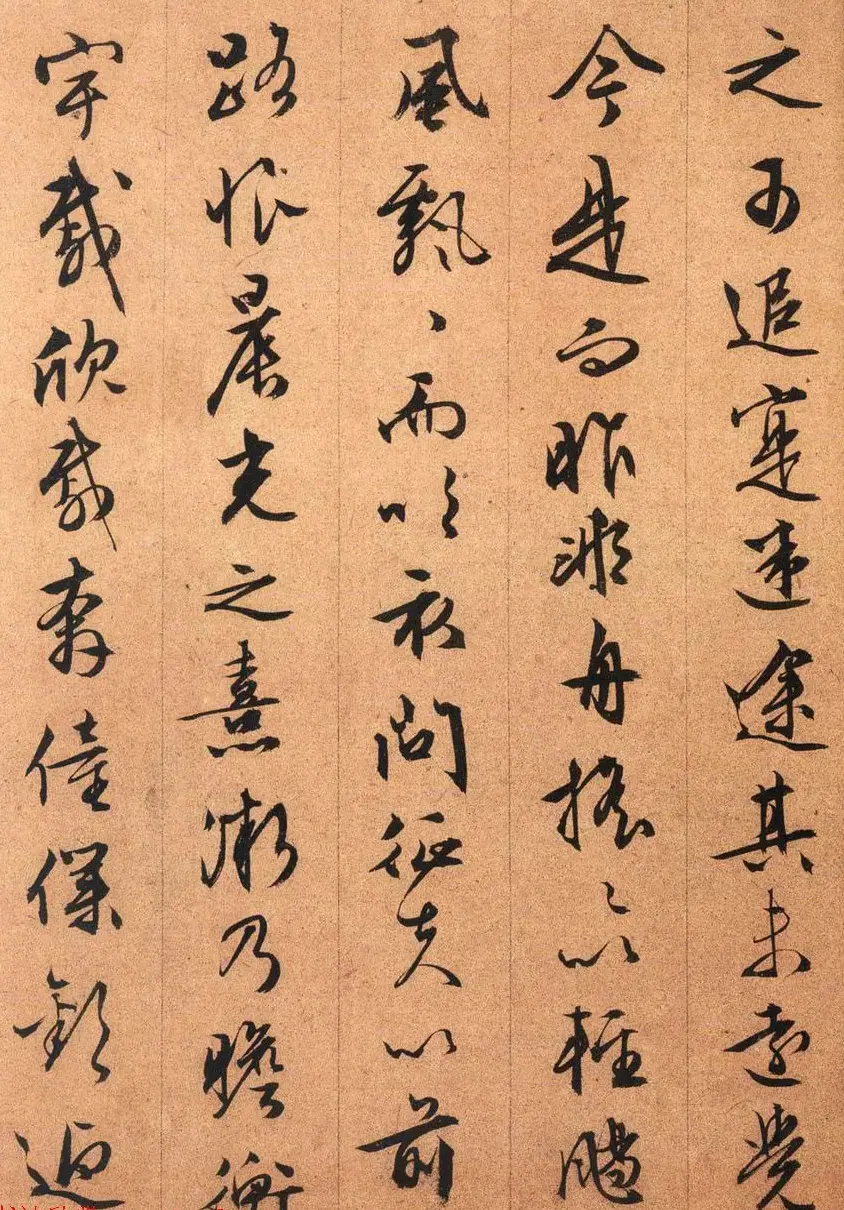 之可追寔迷途其未遠覺
今是而昨非舟摇々以輕颺
風飄々而吹衣問征夫以前
路恨晨光之熹微乃瞻衡
宇載欣載奔僮僕歡迎